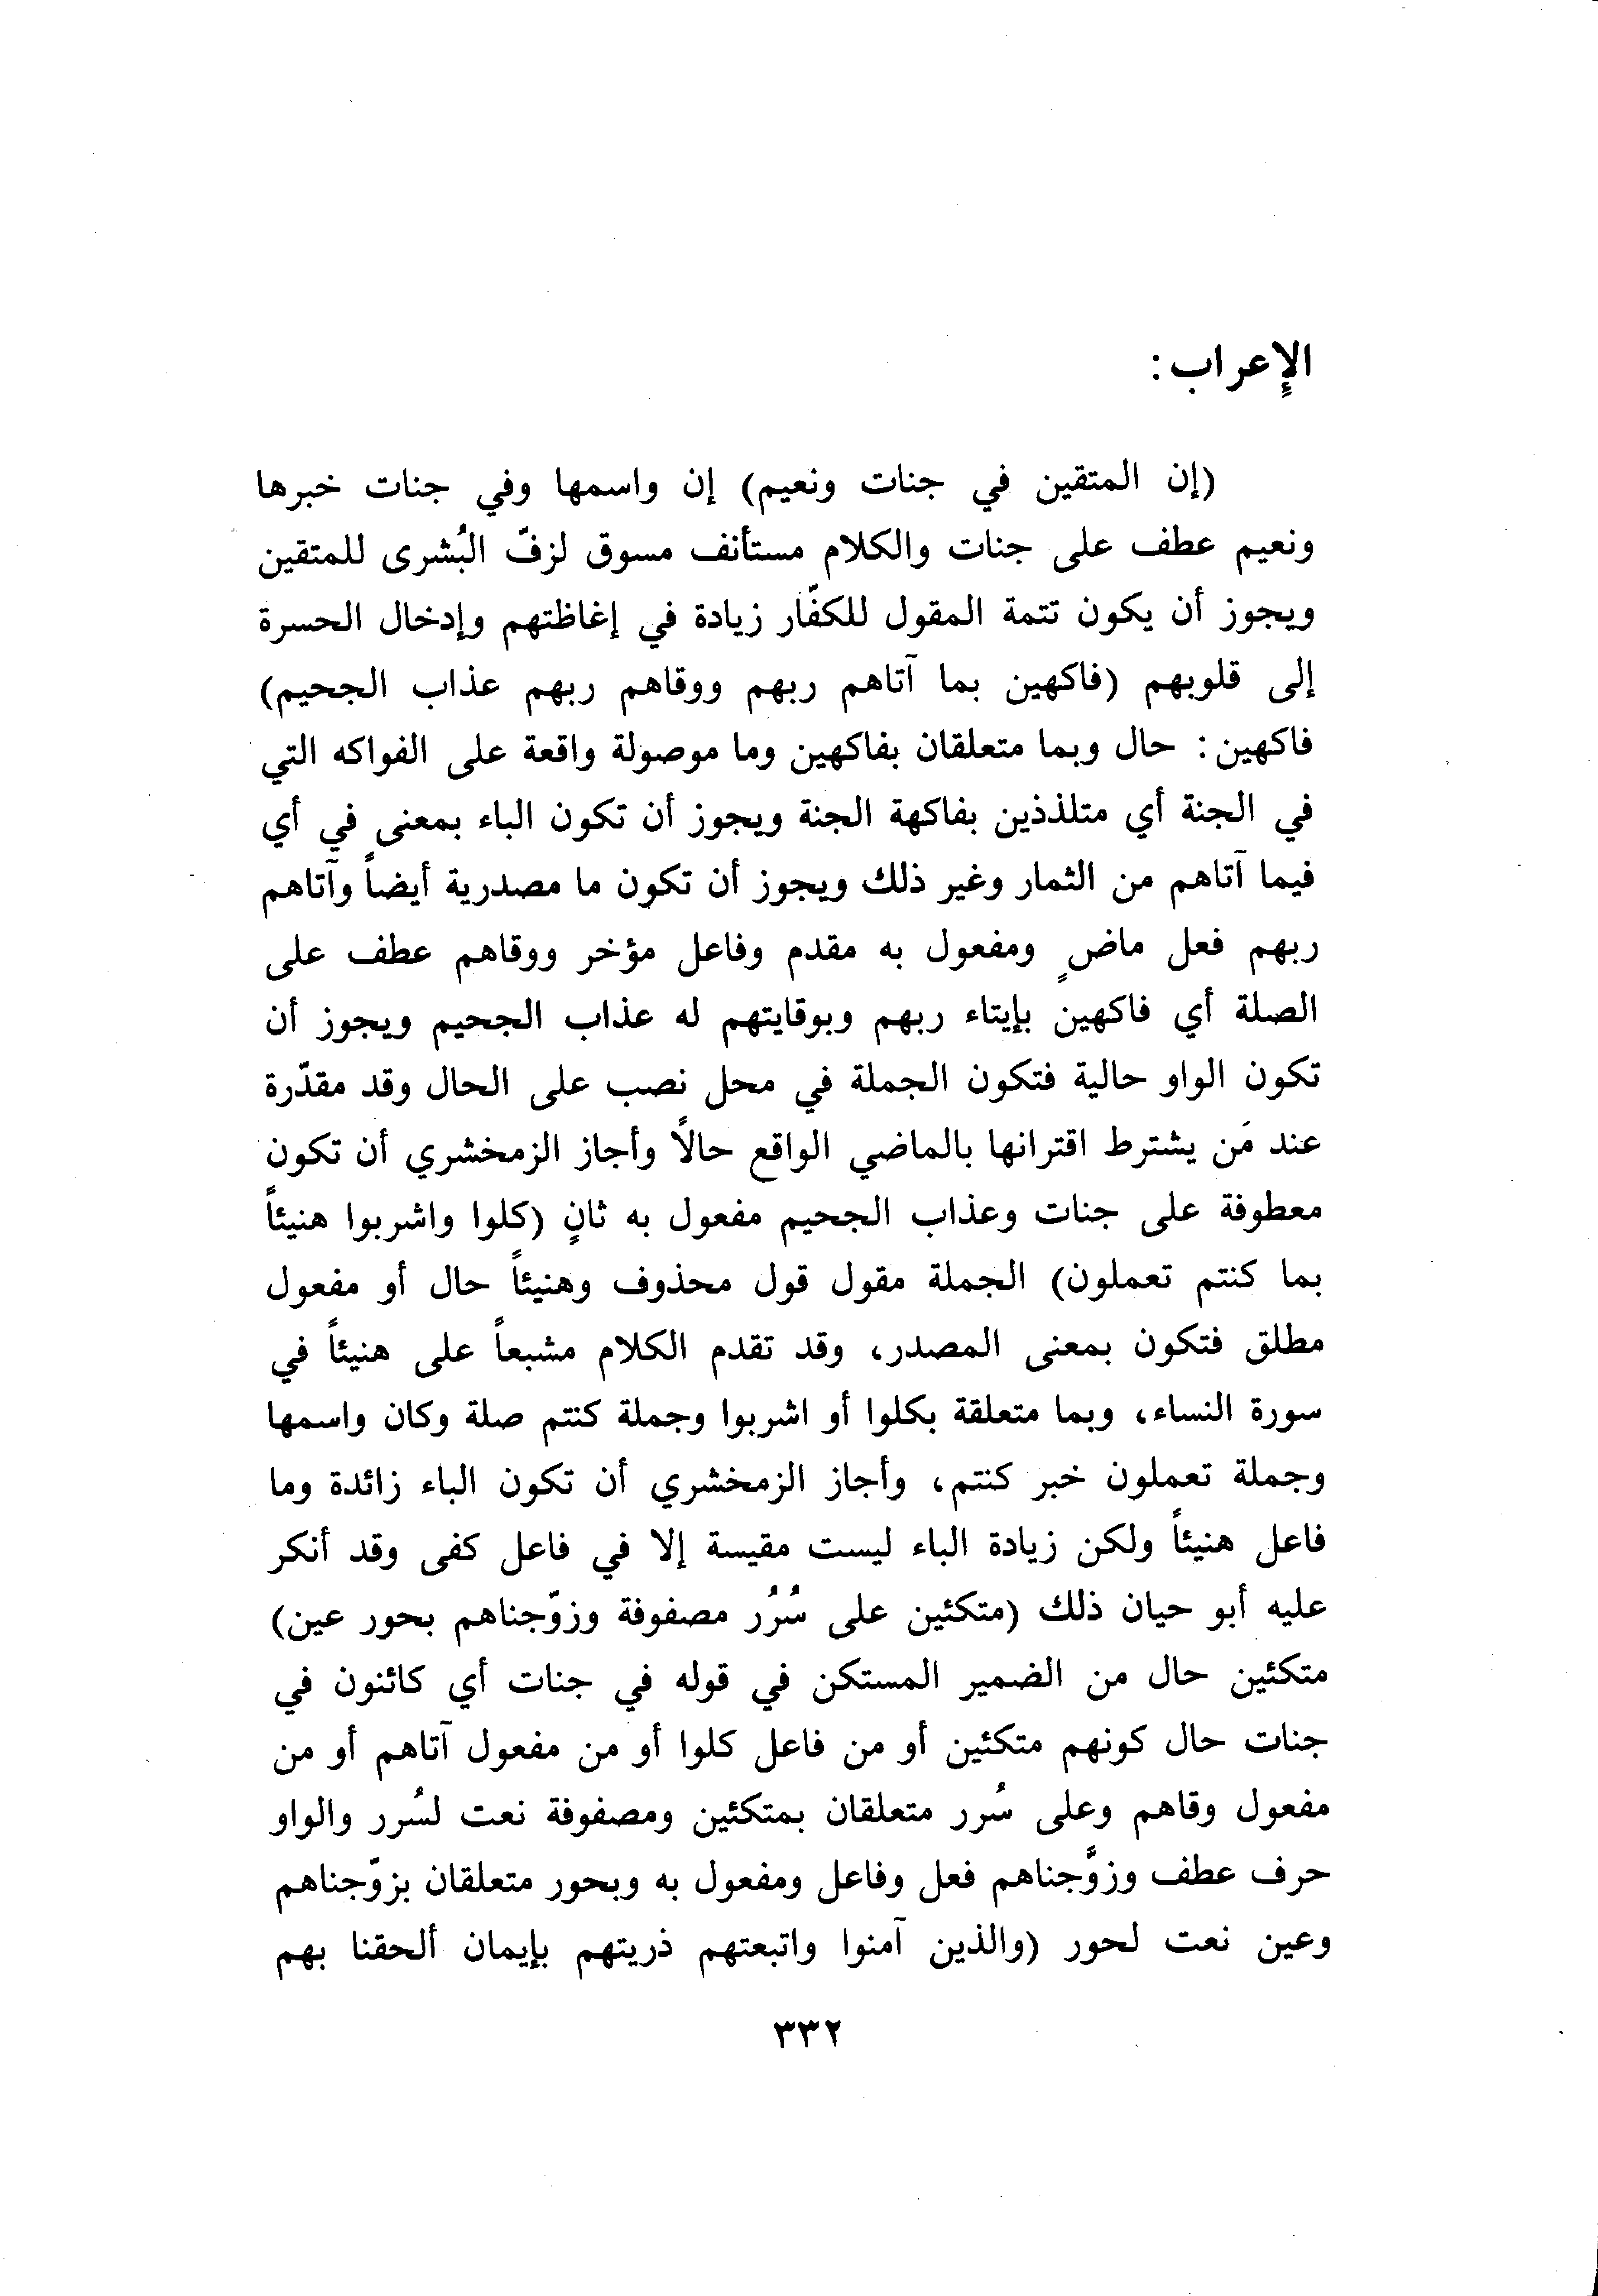 الإعراب :
(إن المتقين في جنات ونعيم) إن واسمها وفي جنات خبرها
ونعيم عطف على جنات والكلام مستأنف مسوق لزفّ البُشرى للمتقين
ويجوز أن يكون تتمة المقول للكفّار زيادة في إغاظتهم وإدخال الحسرة
إلى قلوبهم (فاكهين بما آتاهم ربهم ووقاهم ربهم عذاب الجحيم)
فاكهين : حال وبما متعلقان بفاكهين وما موصولة واقعة على الفواكه التي
في الجنة أي متلذذين بفاكهة الجنة ويجوز أن تكون الباء بمعنى في أي
فيما آتاهم من الثمار وغير ذلك ويجوز أن تكون ما مصدرية أيضاً وآتاهم
ربهم فعل ماضٍ ومفعول به مقدم وفاعل مؤخر ووقاهم عطف على
الصلة أي فاكهين بإيتاء ربهم وبوقايتهم له عذاب الجحيم ويجوز أن
تكون الواو حالية فتكون الجملة في محل نصب على الحال وقد مقدّرة
عند مَن يشترط اقترانها بالماضي الواقع حالًا وأجاز الزمخشري أن تكون
معطوفة على جنات وعذاب الجحيم مفعول به ثانٍ (كلوا واشربوا هنيئاً
بما كنتم تعملون) الجملة مقول قول محذوف وهنيئاً حال أو مفعول
مطلق فتكون بمعنى المصدر، وقد تقدم الكلام مشبعاً على هنيئاً في
سورة النساء، وبما متعلقة بكلوا أو اشربوا وجملة كنتم صلة وكان واسمها
وجملة تعملون خبر كنتم، وأجاز الزمخشري أن تكون الباء زائدة وما
فاعل هنيئاً ولكن زيادة الباء ليست مقيسة إلا في فاعل كفى وقد أنكر
عليه أبو حيان ذلك (متكئين على سُرُر مصفوفة وزوّجناهم بحور عين)
متكئين حال من الضمير المستكن في قوله في جنات أي كائنون في
جنات حال كونهم متكئين أو من فاعل كلوا أو من مفعول آتاهم أو من
مفعول وقاهم وعلى سُرر متعلقان بمتكئين ومصفوفة نعت لسُرر والواو
حرف عطف وزوَّجناهم فعل وفاعل ومفعول به وبحور متعلقان بزوّجناهم
وعين نعت لحور (والذين آمنوا واتبعتهم ذريتهم بإيمان ألحقنا بهم
٣٣٢